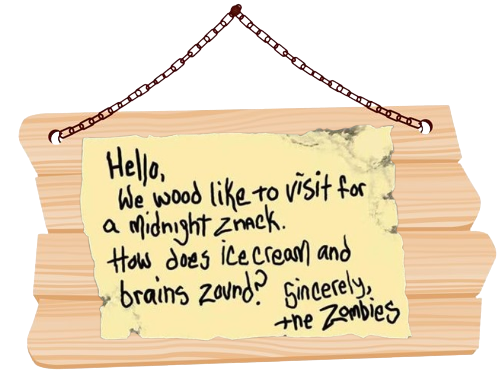 Hello,
We wood like to visit for
a midnight znack.
How does icecream and
brains zound? Sincerely,
the Zombies